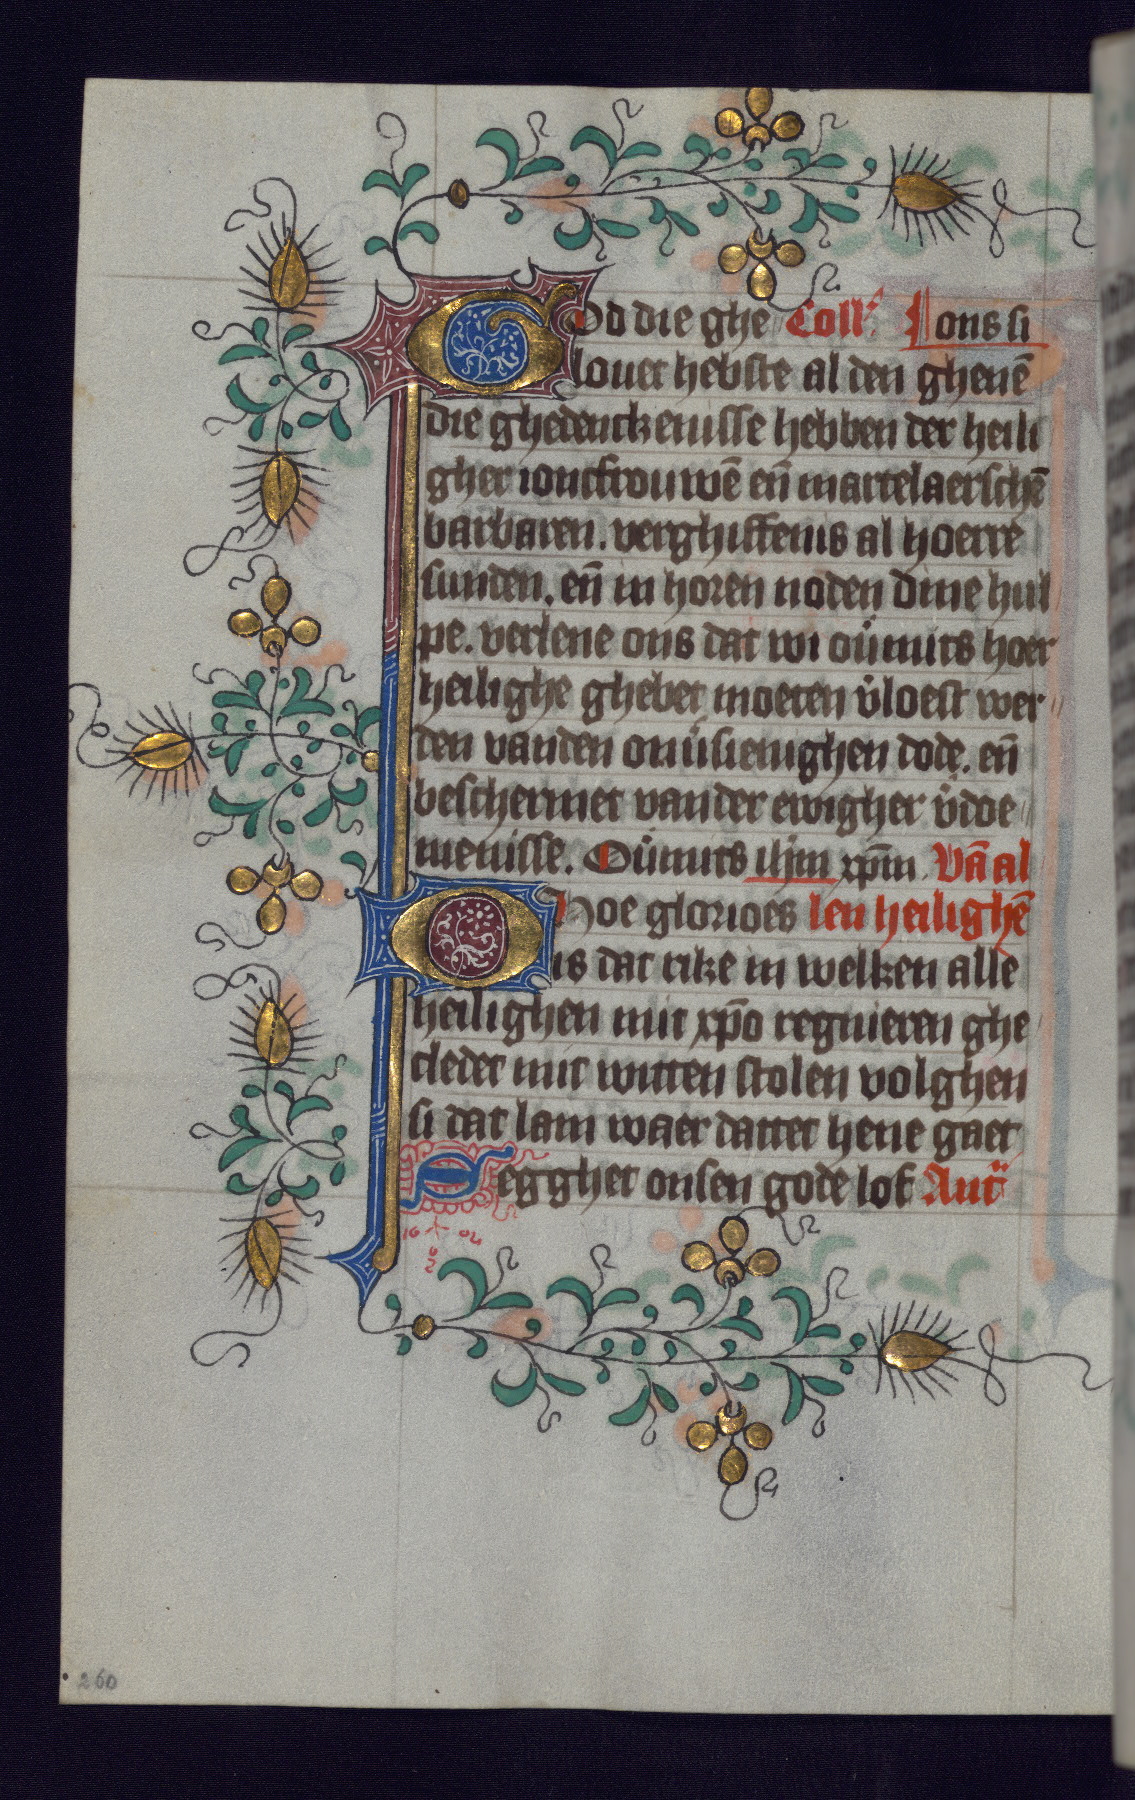 God die ghe Coll' Lons li
louet hebste al den ghenē
die ghedenckenisse hebben der heili
gher ioncfrouwē eñ martelaerschē
barbaren. verghiffenis al hoerre
sunden. eñ in horen noden dine hul
pe. verlene ons dat wi ou̇mits hoer
heilighe ghebet moeten v̇loest wer
den vanden onv̇sienighen dode. eñ
beschermet vander ewigher v̇doe
menisse. Ou̇mits ihm xp̄m. Vā al
Hoe glorioes len heilighē
is dat rike in welken alle
heilighen mit xp̄o regnieren ghe
cledet mit witten stolen volghen
si dat lam waer dattet hene gaet
Segghet onsen gode lof Ant̄
260